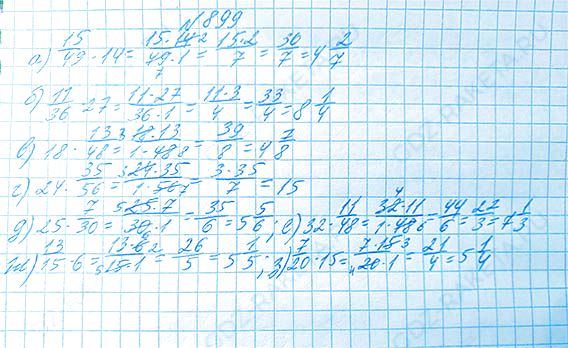 №899
а) 15/49 · 14 = 15·14 2/49·1 7 = 15·2/7 = 30/7 = 4 2/7
б) 11/36 · 27 = 11·27/36·1 = 11·3/4 = 33/4 = 8 1/4
в) 18 · 13/48 = 3 18·13/1·48 8 = 39/8 = 4 7/8
г) 24 · 35/56 = 3 24·35/1·56 7 = 3·35/7 = 15
д) 25 · 7/30 = 5 25·7/30·1 6 = 35/6 = 5 5/6; е) 32 · 11/48 = 4 32·11/1·48 6 = 44/6 = 22/3 = 7 1/3
ж) 13/15 · 6 = 13·6 2/5 15·1 = 26/5 = 5 1/5; з) 7/20 · 15 = 7·15 3/4 20·1 = 21/4 = 5 1/4
GDZ-RAKETA.RU